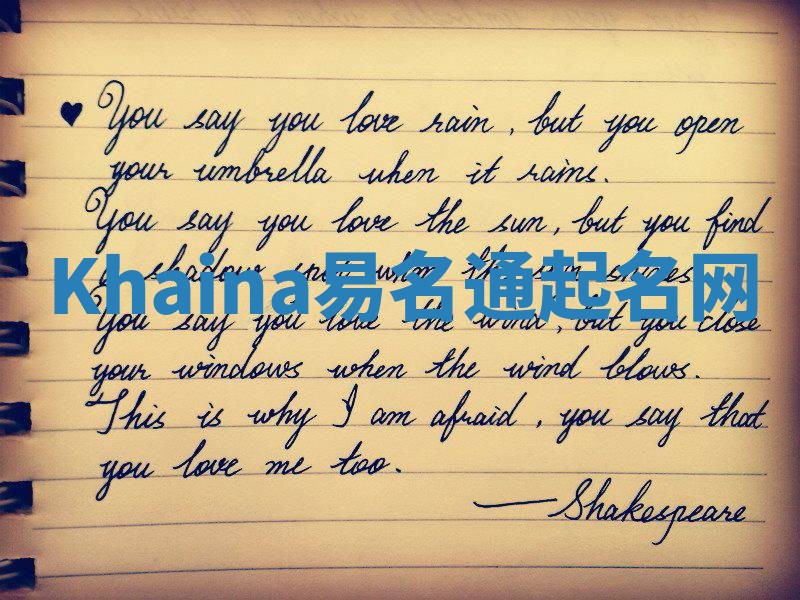 ♥ You say you love rain, but you open
your umbrella when it rains.
You say you love the sun, but you find
a shadow spot when the sun shines.
Khaina易名通起名网
You say you love the wind, but you close
your windows when the wind blows.
This is why I am afraid, you say that
you love me too.
—Shakespeare